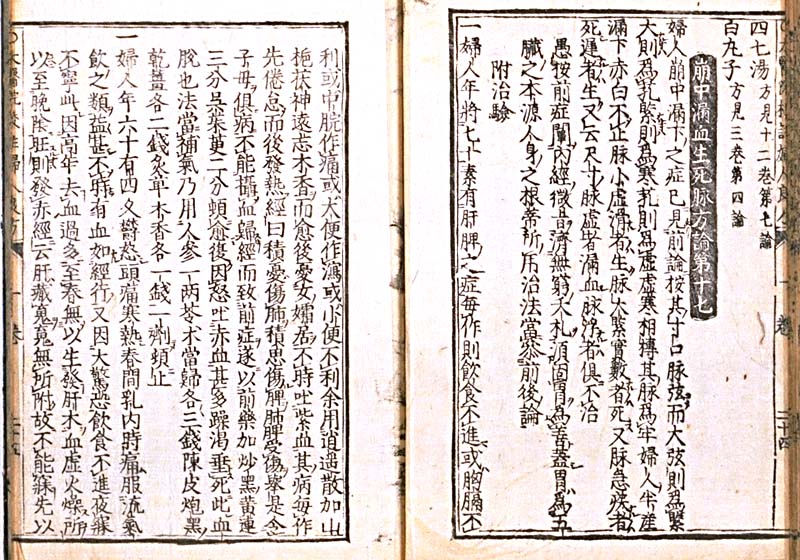 四七湯 方見十二卷第七論
白丸子 方見三卷第四論
崩中漏血生死脉方論第十七
婦人崩中漏下之症已見前論按其寸口脉弦而大弦則爲緊
大則爲芤緊則爲寒芤則爲虛虛寒相搏其脉爲牢婦人半產
漏下赤白不止脉小虛滑者生脉大緊實數者死又脉急疾者
死遲者生又云尺寸脉虛者漏血脉浮者俱不治
愚按前症闡內經微旨濟無窮夭札須固胃爲善蓋胃爲五
臟之本源人身之根蒂所用治法當叅前後論
附治驗
一婦人年將七十素有肝脾之症每作則飲食不進或胸膈不
一卷
二十四
利或中脘作痛或大便作瀉或小便不利余用逍遙散加山
梔茯神遠志木香而愈後憂女孀居不時吐紫血其病每作
先倦怠而後發熱經曰積憂傷肺積思傷脾肺脾受傷是令
子母俱病不能攝血歸經而致前症遂以前藥加炒黑黃連
三分吳茱萸二分頓愈復因怒吐赤血甚多躁渴垂死此血
脫也法當補氣乃用人參一兩苓术當歸各三錢陳皮炮黑
乾薑各二錢炙草木香各一錢一劑頓止
一婦人年六十有四久鬱怒頭痛寒熱春間乳內時痛服流氣
飲之類益甚不時有血如經行又因大驚恐飲食不進夜寐
不寧此因高年去血過多至春無以生發肝木血虛火燥所
以至晚陰旺則發赤經云肝藏䰟䰟無所附故不能寐先以
一卷
二十五